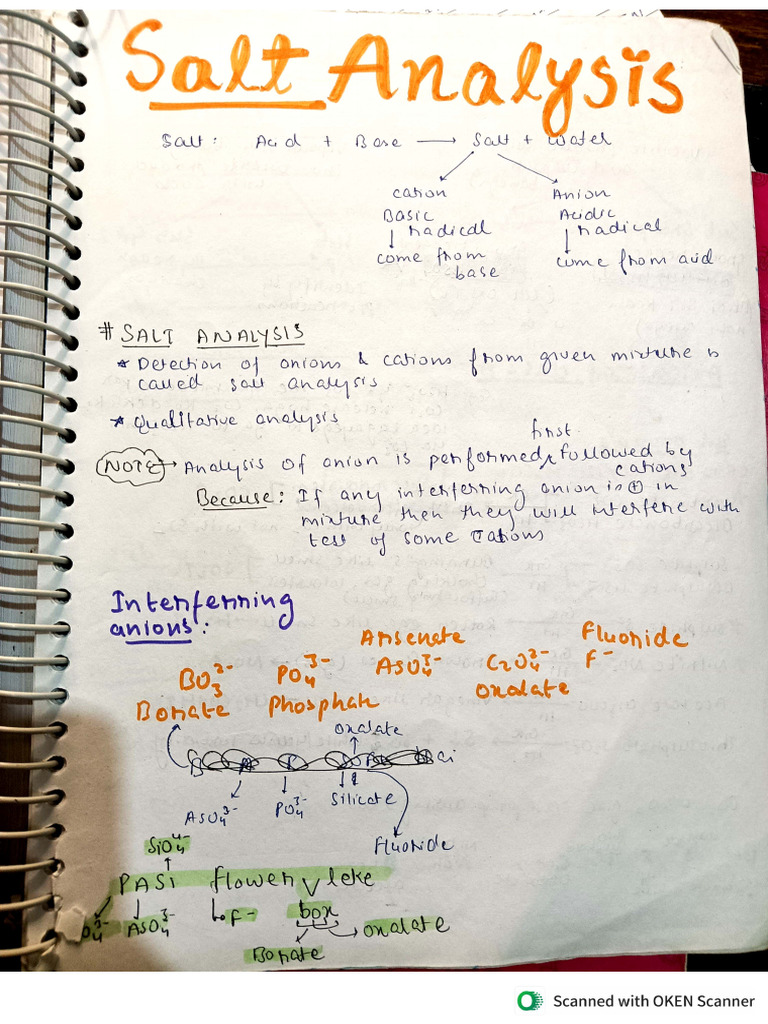 Salt Analysis
Salt: Acid + Base → Salt + Water
cation Anion
Basic radical Acidic radical
come from base come from acid
# SALT ANALYSIS
* Detection of anions & cations from given mixture is
called salt analysis
* Qualitative analysis
first
NOTE → Analysis of anion is performed, followed by
cations
Because: If any interferring anion is ⊕ in
mixture then they will interfere with
test of some cations
Interferring
anions:
BO₃³⁻ PO₄³⁻ Arsenate AsO₄³⁻ C₂O₄²⁻ Fluoride F⁻
Borate Phosphate Oxalate
Oxalate
AsO₄³⁻ PO₄³⁻ Silicate
Fluoride
SiO₄⁴⁻
PASi flower leke
box
O₄³⁻ AsO₄³⁻ F⁻ oxalate
Borate
Scanned with OKEN Scanner